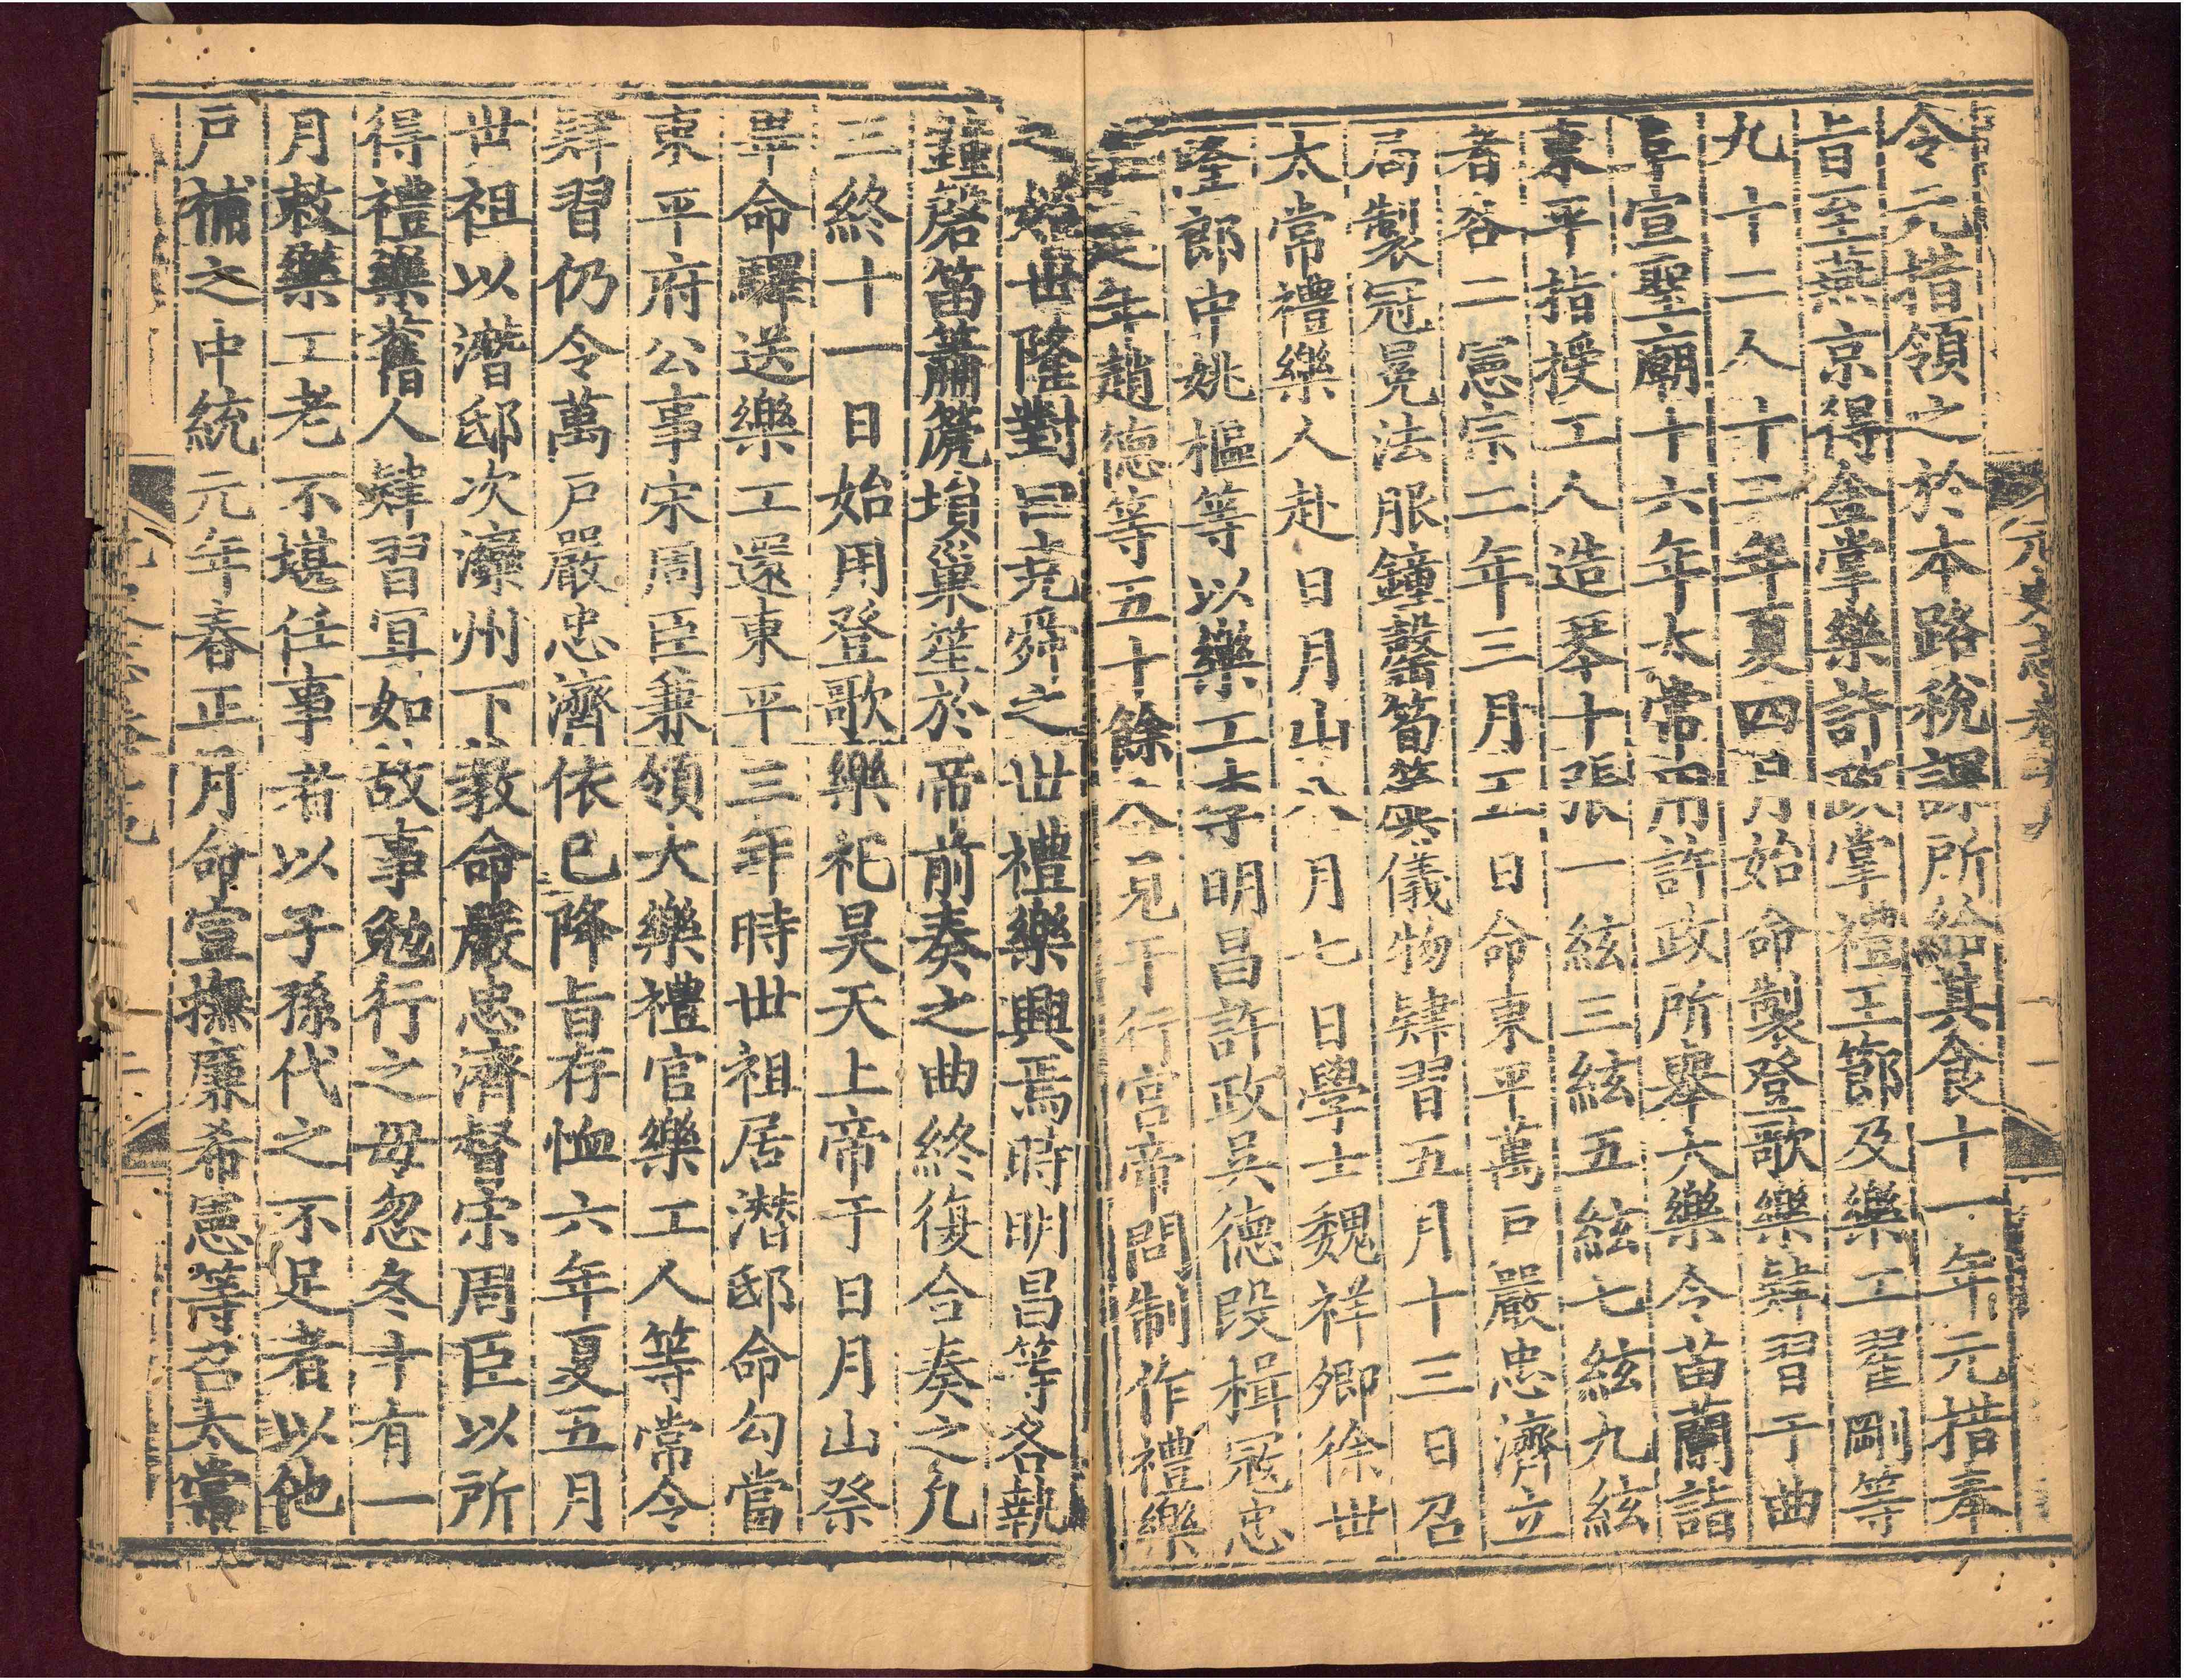 元史志卷十
令元措領之於本路稅課所給其食十一年元措奉
旨至燕京得金掌樂許政掌禮王節及樂工翟剛等
九十二人十二年夏四月始命製登歌樂肄習于曲
阜宣聖廟十六年太常用許政所舉大樂令苗蘭詣
東平指授工人造琴十張一絃三絃五絃七絃九絃
者各二憲宗二年三月五日命東平萬戶嚴忠濟立
局製冠冕法服鐘磬筍簴儀物肄習五月十三日召
太常禮樂人赴日月山八月七日學士魏祥卿徐世
隆郎中姚樞等以樂工李明昌許政吳德段楫寇忠
年趙德等五十餘人見于行宮帝問制作禮樂
之始世隆對曰堯舜之世禮樂興焉時明昌等各執
鐘磬笛簫篪塤巢笙於帝前奏之曲終復合奏之凡
三終十一日始用登歌樂祀昊天上帝于日月山祭
畢命驛送樂工還東平三年時世祖居潛邸命勾當
東平府公事宋周臣兼領大樂禮官樂工人等常令
肄習仍令萬戶嚴忠濟依已降旨存恤六年夏五月
世祖以潛邸次濼州下教命嚴忠濟督宋周臣以所
得禮樂舊人肄習冝如故事勉行之毋忽冬十有一
月敕樂工老不堪任事者以子孫代之不足者以他
戶補之中統元年春正月命宣撫廉希憲等召太常
二